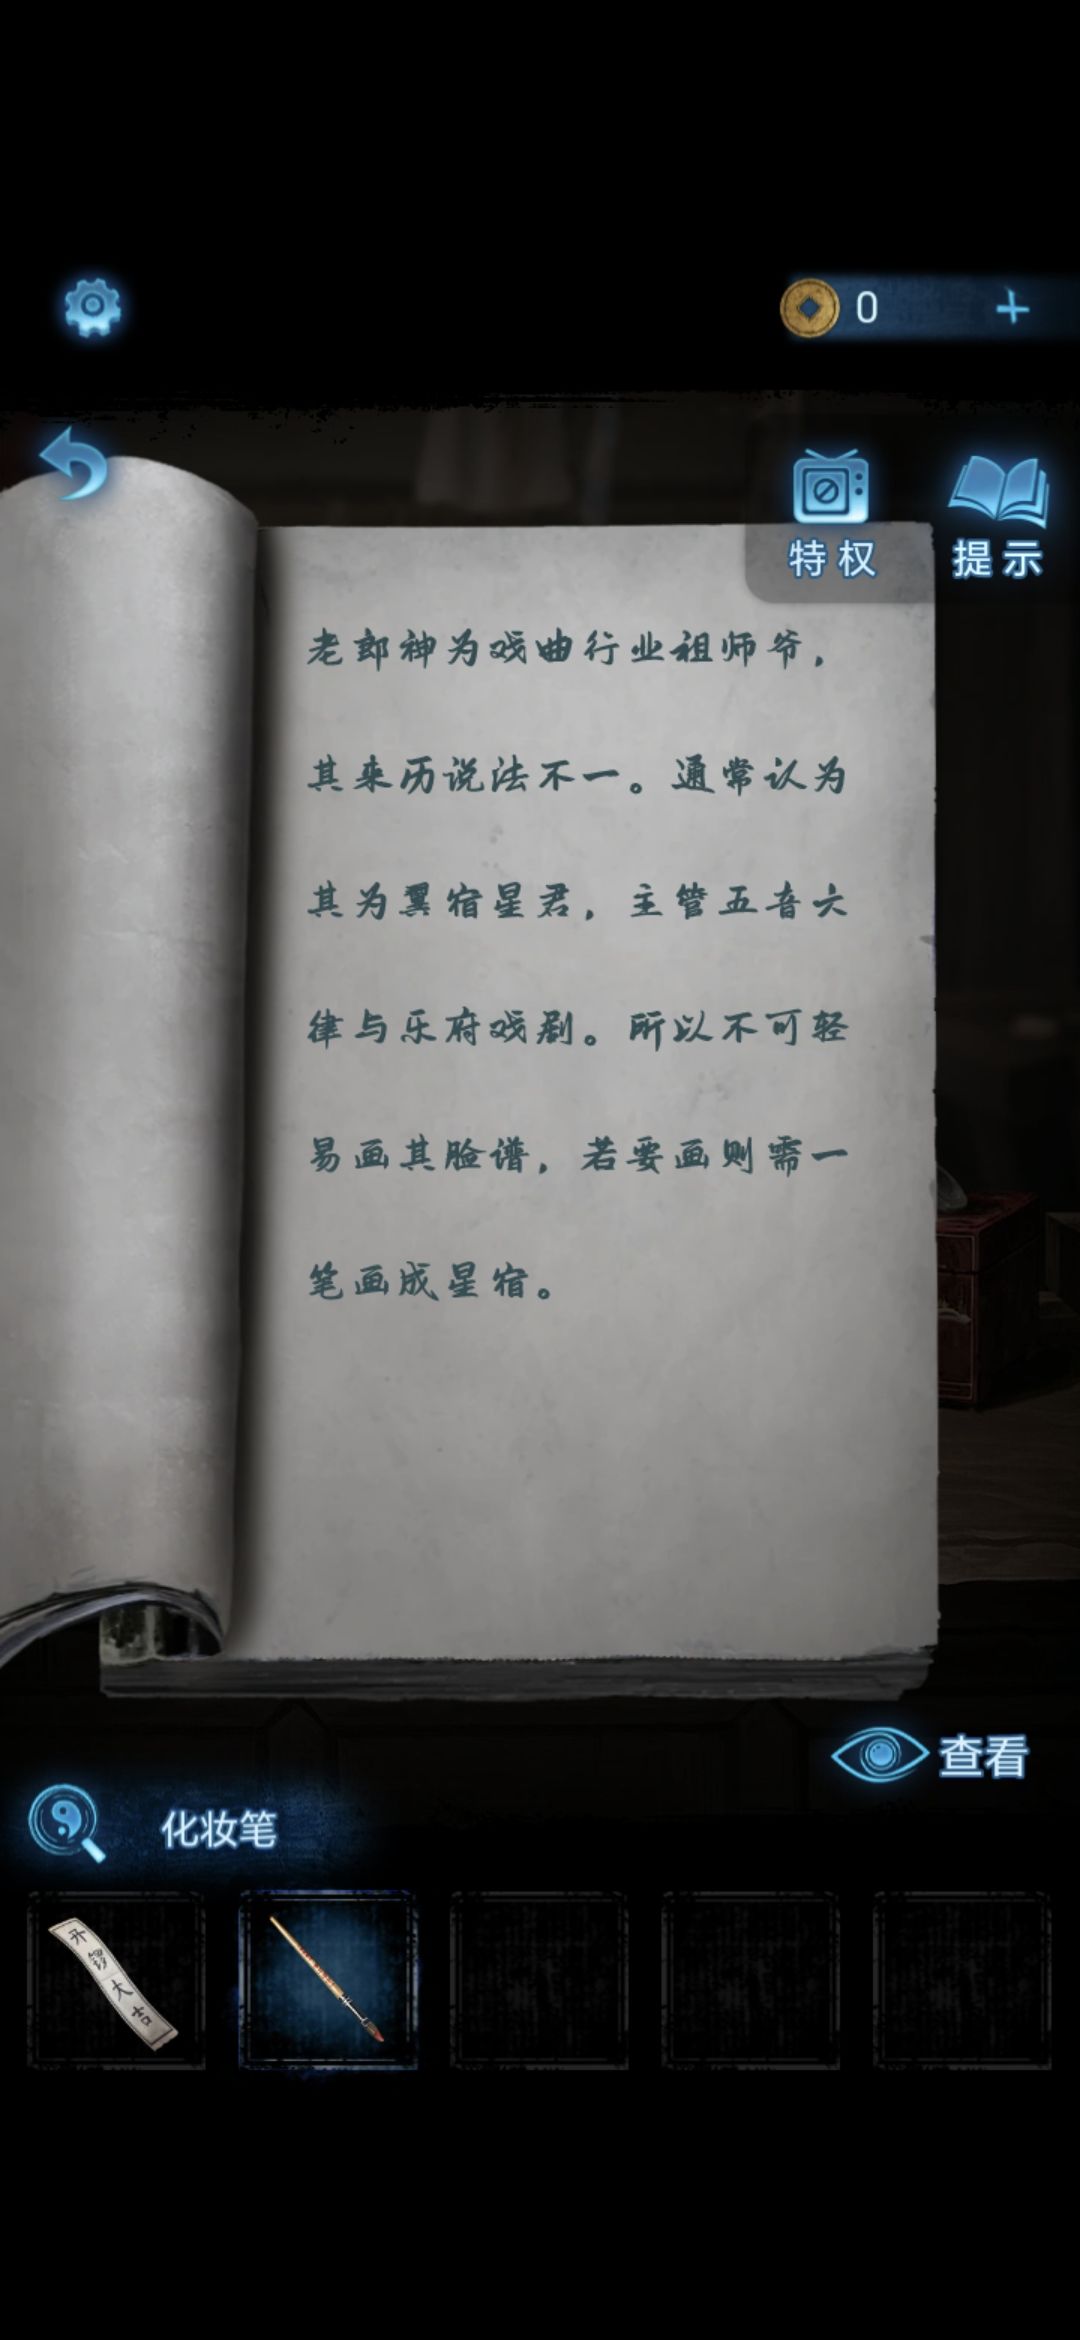 0
特权
提示
老郎神为戏曲行业祖师爷，
其来历说法不一。通常认为
其为翼宿星君，主管五音六
律与乐府戏剧。所以不可轻
易画其脸谱，若要画则需一
笔画成星宿。
查看
化妆笔
开锣大吉